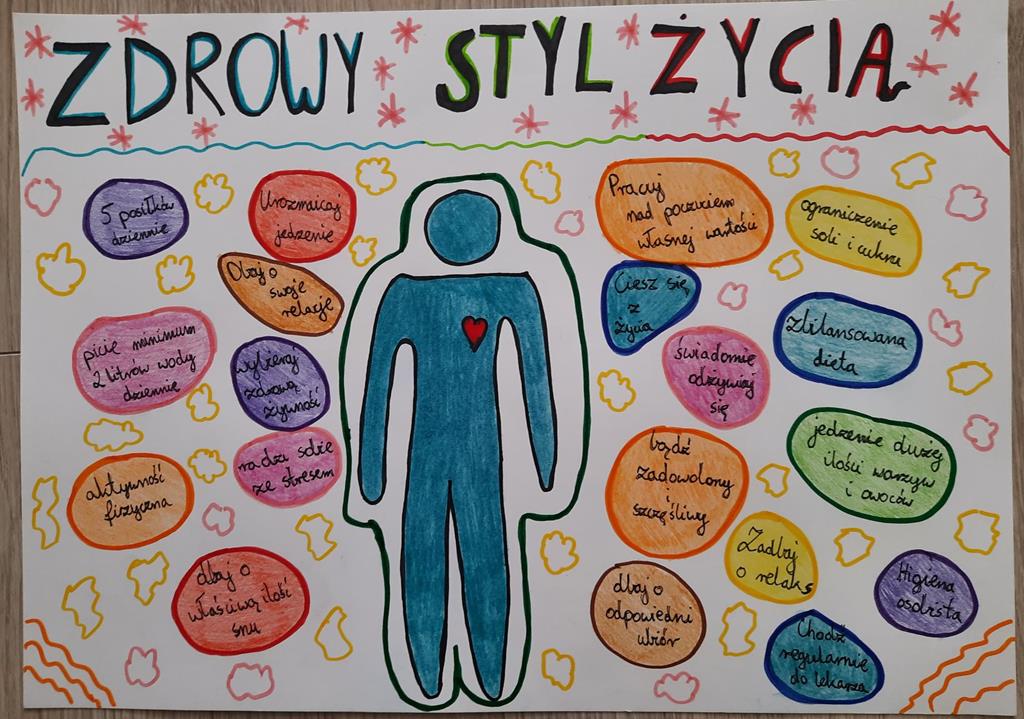 ZDROWY STYL ŻYCIA
5 posiłków
dziennie
Urozmaicaj
jedzenie
Dbaj o
swoje
relacje
picie minimum
2 litrów wody
dziennie
wybieraj
zdrową
żywność
radź sobie
ze stresem
aktywność
fizyczna
dbaj o
właściwą ilość
snu
Pracuj
nad poczuciem
własnej wartości
ograniczenie
soli i cukru
Ciesz się
z
życia
zbilansowana
dieta
świadomie
odżywiaj
się
bądź
zadowolony
i
szczęśliwy
jedzenie dużej
ilości warzyw
i owoców
Zadbaj
o relaks
dbaj o
odpowiedni
ubiór
Higiena
osobista
Chodź
regularnie
do lekarza